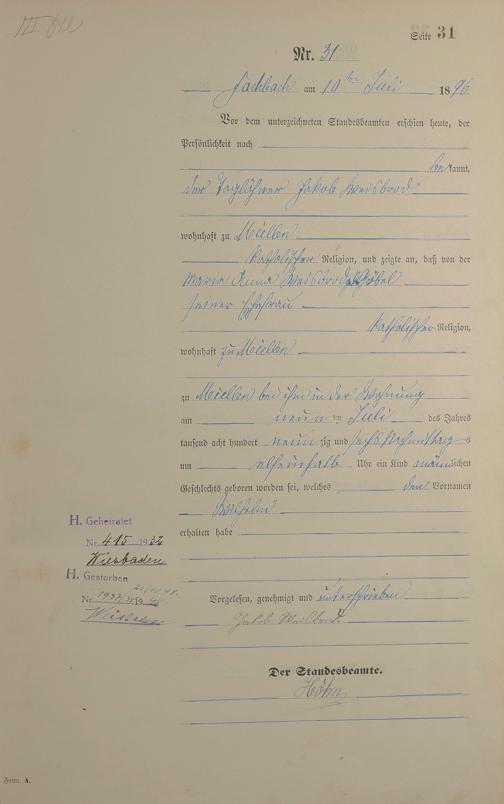 Seite 31
Nr. 31
Fachbach am 10ten Juli 1896
Vor dem unterzeichneten Standesbeamten erschien heute, der
Persönlichkeit nach
bekannt,
der Taglöhner Jakob Weisbrod
wohnhaft zu Miellen
katholischer Religion, und zeigte an, daß von der
Maria Anna Weisbrod geb. Göbel
seiner Ehefrau
katholischer Religion,
wohnhaft zu Miellen
zu Miellen bei ihm in der Wohnung
am neun ten Juli des Jahres
tausend acht hundert neunzig und sechs Nachmittags
um elfeinhalb Uhr ein Kind männlichen
Geschlechts geboren worden sei, welches den Vornamen
Wilhelm
erhalten habe
H. Geheiratet
Nr. 415 1932
Wiesbaden
H. Gestorben
Nr.
Wiesbaden
Vorgelesen, genehmigt und unterschrieben
Jakob Weisbrod.
Der Standesbeamte.
Höhn
Form. A.